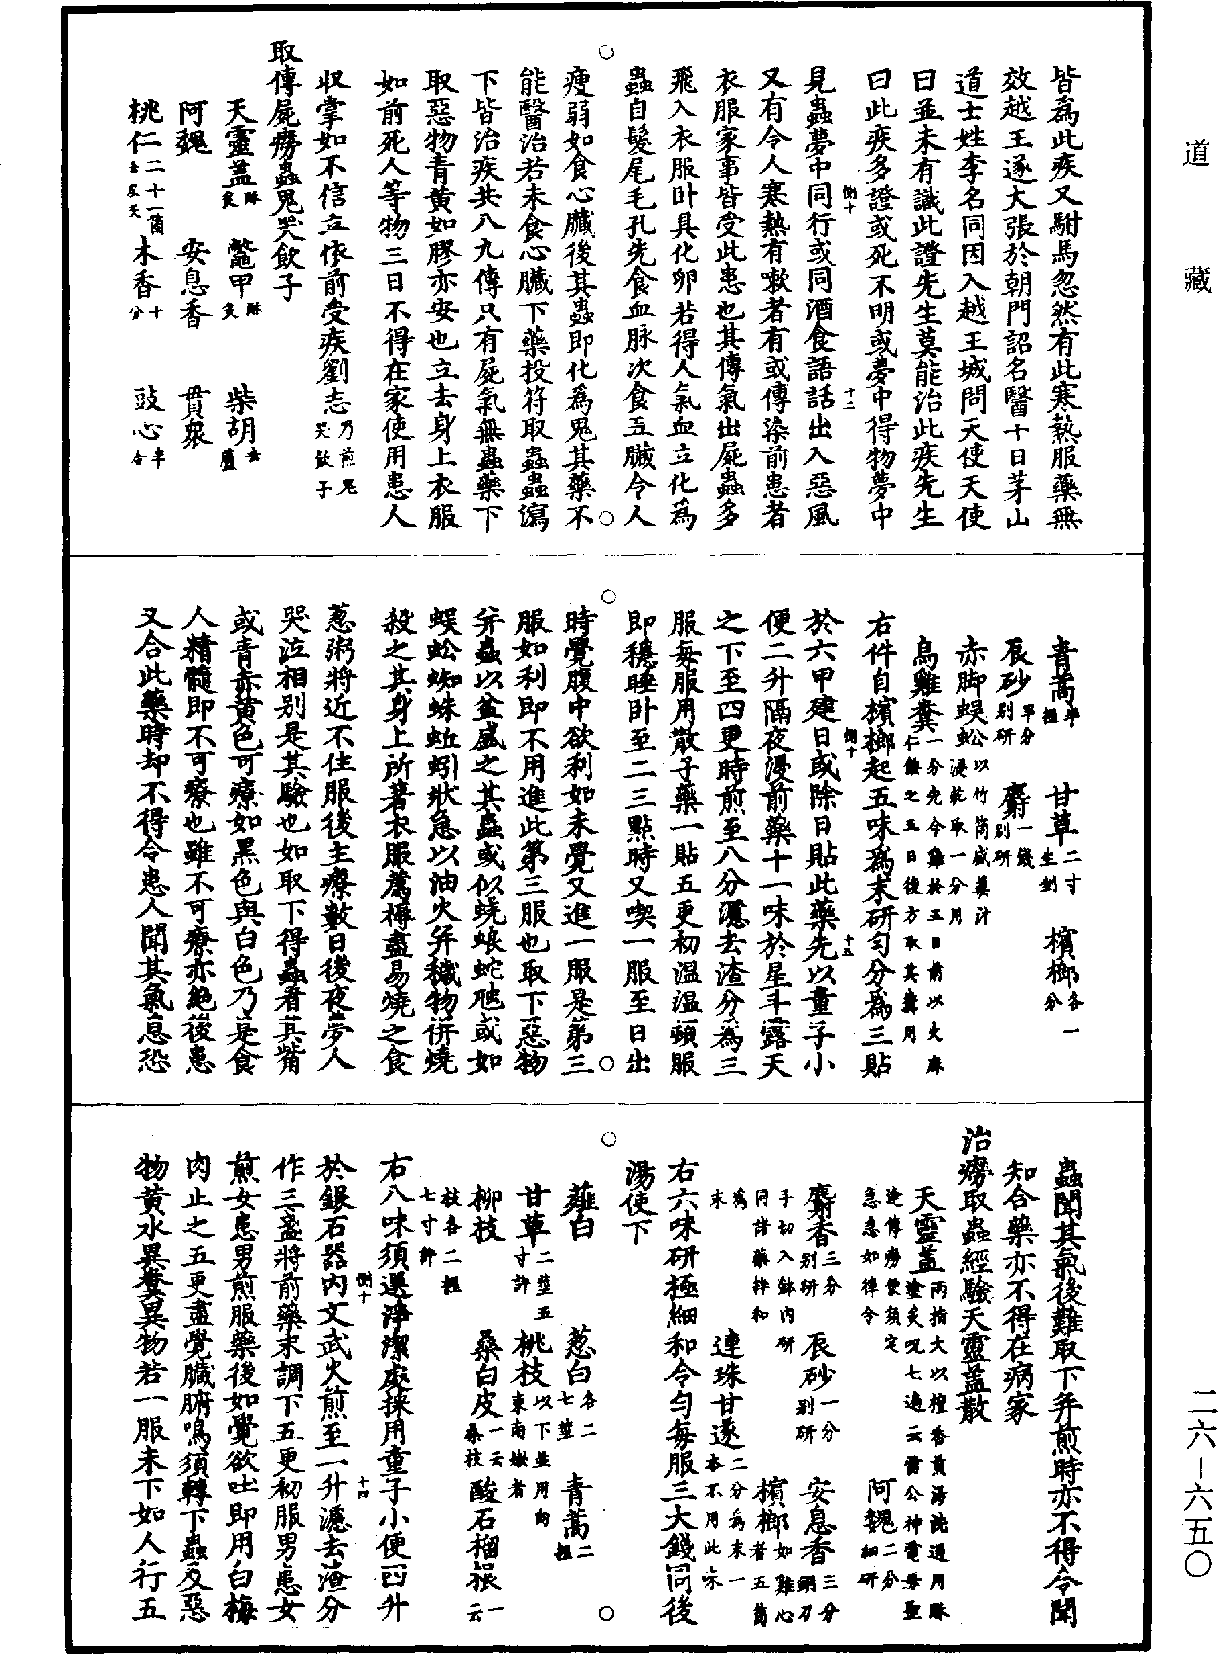 道藏
皆為此疾又駙馬忽然有此寒熱服藥無
效越王遂大張於朝門詔名醫十日茅山
道士姓李名同因入越王城問天使天使
曰並未有識此證先生莫能治此疾先生
曰此疾多證或死不明或夢中得物夢中
見蟲夢中同行或同酒食語話出入惡風
又有令人寒熱有嗽者有或傳染前患者
衣服家事皆受此患也其傳氣出屍蟲多
飛入衣服臥具化卵若得人氣血立化為
蟲自髮尾毛孔先食血脉次食五臟令人
瘦弱如食心臟後其蟲即化為鬼其藥不
能醫治若未食心臟下藥投符取蟲蟲瀉
下皆治疾共八九傳只有屍氣無蟲藥下
取惡物青黃如膠亦安也立去身上衣服
如前死人等物三日不得在家使用患人
收掌如不信立依前受疾劉志乃煎鬼哭飲子
取傳屍癆蟲鬼哭飲子
天靈蓋酥炙 鼈甲酥炙 柴胡去蘆
阿魏 安息香 貫衆
桃仁二十一箇去皮尖 木香十分 豉心半合
青蒿半握 甘草二寸生剉 檳榔各一分
辰砂半分別研 麝一錢別研
赤脚蜈蚣以竹筒盛薑汁浸乾取一分用
烏雞糞一分先令雞於五日前以火麻仁餧之五日後方取其糞用
右件自檳榔起五味為末研勻分為三貼
於六甲建日或除日貼此藥先以童子小
便二升隔夜浸前藥十一味於星斗露天
之下至四更時煎至八分濾去渣分為三
服每服用散子藥一貼五更初溫溫頓服
即穩睡臥至二三點時又喫一服至日出
時覺腹中欲利如未覺又進一服是第三
服如利即不用進此第三服也取下惡物
并蟲以盆盛之其蟲或似蜣蜋蛇虺或如
蜈蚣蜘蛛蚯蚓狀急以油火并穢物併燒
殺之其身上所著衣服薦褥盡易燒之食
葱粥將近不住服後主療數日後夜夢人
哭泣相別是其驗也如取下得蟲看其觜
或青赤黃色可療如黑色與白色乃是食
人精髓即不可療也雖不可療亦絕後患
又合此藥時却不得令患人聞其氣息恐
蟲聞其氣後難取下并煎時亦不得令聞
知合藥亦不得在病家
治癆取蟲經驗天靈蓋散
天靈蓋兩指大以檀香黃湯洗過用酥塗炙呪七遍云雷公神電母聖逢傳癆便須定急急如律令 阿魏二分細研
麝香三分別研 辰砂一分別研 安息香三分銅刀子切入鉢內研同諸藥拌和為末
連珠甘遂二分為末一本不用此味 檳榔如雞心者五箇
右六味研極細和令勻每服三大錢同後
湯使下
薤白 葱白各二七莖 青蒿二握
甘草二莖五寸許 桃枝以下並用向東南嫩者
柳枝 桑白皮一云桑枝 酸石榴根一云
枝各二握七寸許
右八味須選淨潔處採用童子小便四升
於銀石器內文武火煎至一升濾去渣分
作三盞將前藥末調下五更初服男患女
煎女患男煎服藥後如覺欲吐即用白梅
肉止之五更盡覺臟腑鳴須轉下蟲及惡
物黃水異糞異物若一服未下如人行五
二六—六五〇